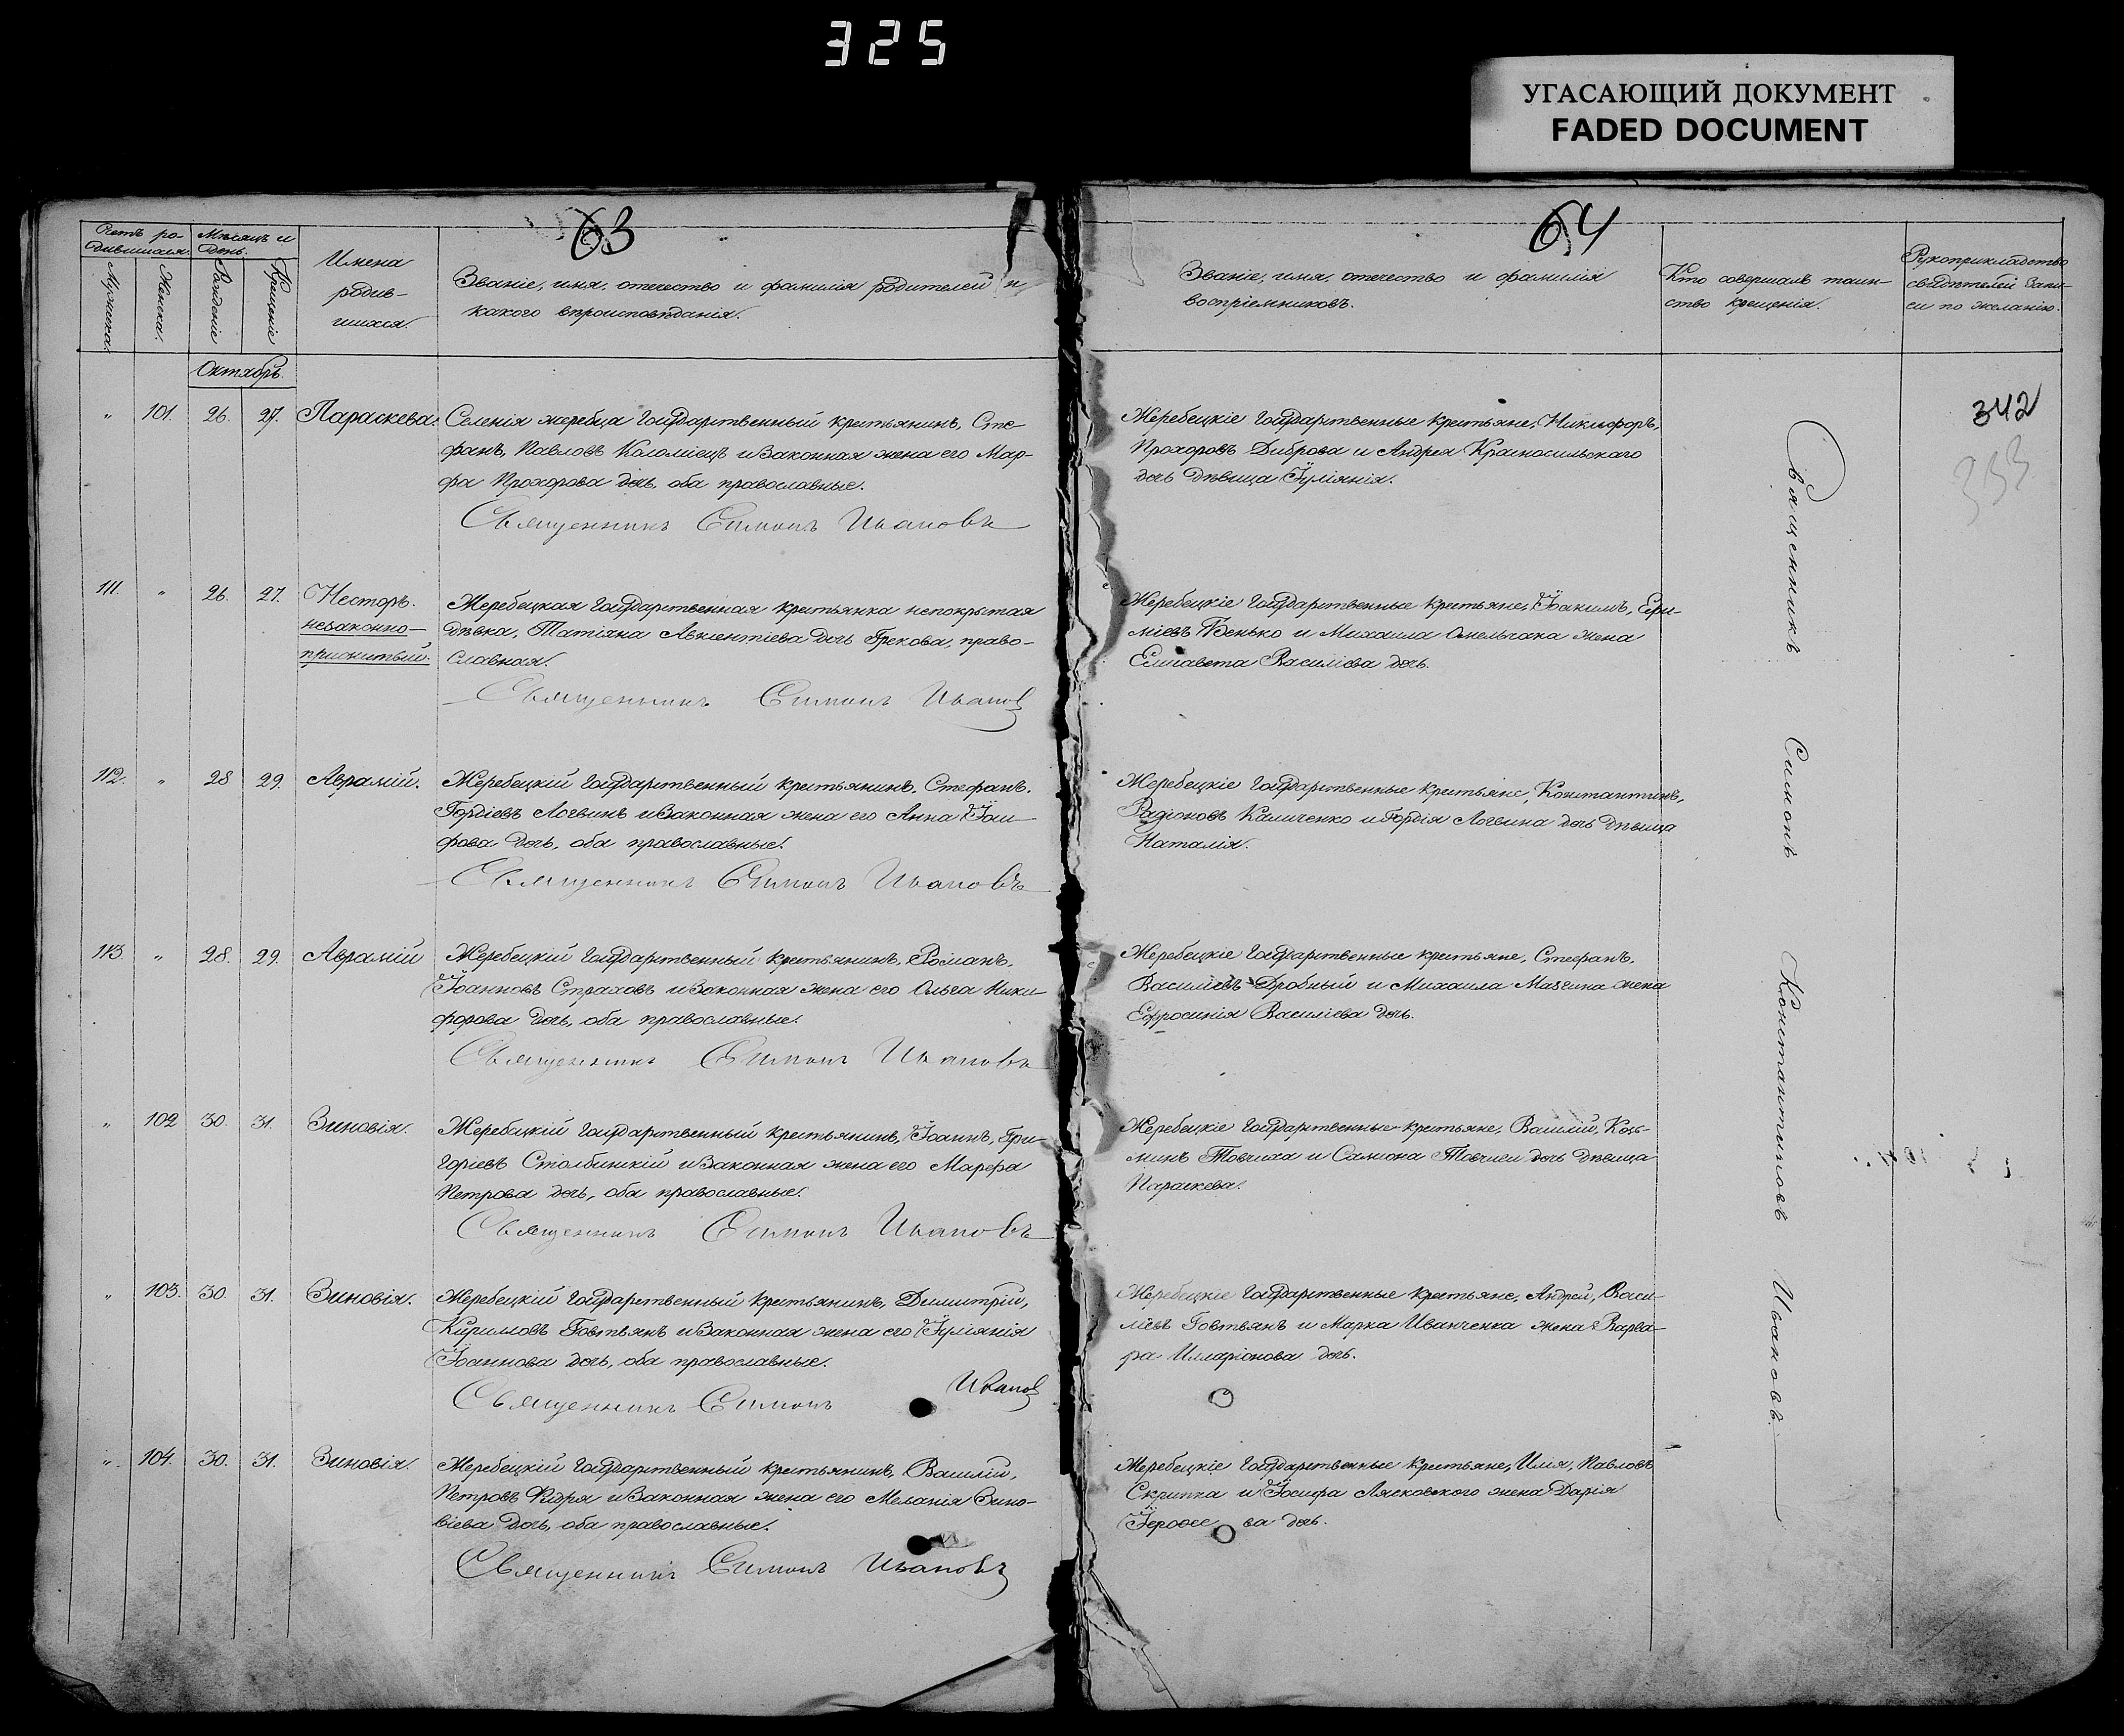 325
УГАСАЮЩИЙ ДОКУМЕНТ
FADED DOCUMENT
63
Счетъ ро-
дившихся.
Мѣсяцъ и
день.
Мужеска.
Женска.
Рожденіе
Крещеніе
Имена
родив-
шихся.
Званіе, имя, отечество и фамилія родителей и
какого вѣроисповѣданія.
Октябрь
" 101. 26. 27. Параскева.
Селенія жеребца Государственный крестьянинъ, Сте-
фанъ, Павловъ Коломіецъ и законная жена его Мар-
фа Прохорова дочь, оба православные.
Священникъ Симонъ Ивановъ
111. " 26. 27. Несторъ.
незаконно-
прижитый.
Жеребецкая Государственная крестьянка непокрытая
дѣвка, Татіяна Авксентіева дочь Грекова, право-
славная.
Священникъ Симонъ Иванов
112. " 28 29. Аврамій.
Жеребецкій Государственный крестьянинъ, Стефанъ,
Гордіевъ Логвинъ и законная жена его Анна Іоси-
фова дочь, оба православные.
Священникъ Симонъ Ивановъ
113. " 28. 29. Аврамій
Жеребецкій Государственный крестьянинъ, Романъ,
Іоанновъ Страховъ и законная жена его Ольга Ники-
форова дочь, оба православные.
Священникъ Симонъ Ивановъ
" 102 30. 31. Зиновія.
Жеребецкій Государственный крестьянинъ, Іоаннъ, Гри-
горіевъ Столбинскій и законная жена его Марфа
Петрова дочь, оба православные.
Священникъ Симонъ Ивановъ
" 103. 30. 31. Зиновія.
Жеребецкій Государственный крестьянинъ, Димитрій,
Кирилловъ Говтвянъ и законная жена его Іуліянія
Іоаннова дочь, оба православные.
Священникъ Симонъ Иванов
" 104. 30. 31. Зиновія.
Жеребецкій Государственный крестьянинъ, Василій,
Петровъ и законная жена его Меланія Зино-
віева дочь, оба православные.
Священникъ Симонъ Ивановъ
64
Званіе, имя, отечество и фамилія
воспріемниковъ.
Кто совершалъ таин-
ство крещенія.
Рукоприкладство
свидѣтелей запи-
си по желанію.
342
333
Жеребецкіе Государственные крестьяне, Никифоръ,
Прохоровъ Диброва и Андрея Красносильскаго
дочь дѣвица Іуліянія.
Жеребецкіе Государственные крестьяне, Іоакимъ, Ери-
міевъ Бенько и Михаила Омельчака жена
Елисавета Василіева дочь.
Жеребецкіе Государственные крестьяне, Константинъ,
Радіоновъ Каличенко и Гордія Логвина дочь дѣвица
Наталія.
Жеребецкіе Государственные крестьяне, Стефанъ,
Василіевъ Дробный и Михаила жена
Ефросинія Василіева дочь.
Жеребецкіе Государственные крестьяне, Василій, Козь-
минъ и Самсона дочь дѣвица
Параскева.
Жеребецкіе Государственные крестьяне, Андрей, Васи-
ліевъ Говтвянъ и Марка Иванченка жена Варва-
ра Илларіонова дочь.
Жеребецкіе Государственные крестьяне, Илія, Павловъ
Скрипка и Іосифа Лясковского жена Дарія
дочь.
Священникъ Симонъ Константиновъ Ивановъ.